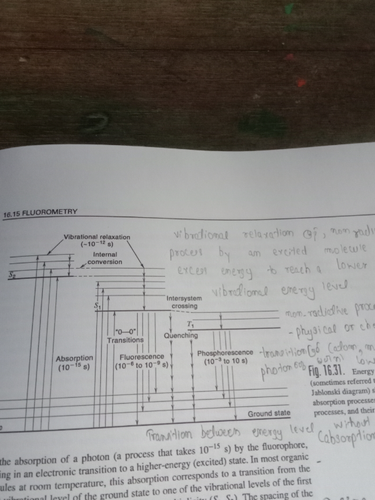 16.15 FLUOROMETRY
Vibrational relaxation
(~10⁻¹² s)
Internal
conversion
S₂
S₁
Intersystem
crossing
T₁
"0—0"
Transitions
Quenching
Absorption
(10⁻¹⁵ s)
Fluorescence
(10⁻⁶ to 10⁻⁹ s)
Phosphorescence
(10⁻³ to 10 s)
Ground state
vibrational relaxation non
process by an excited molecule
energy to reach a lower
vibrational energy level
non-radiative
- physical or
Transition between energy level without
Fig. 16.31. Energy
(sometimes referred
Jablonski diagram)
absorption processe
processes, and their
the absorption of a photon (a process that takes 10⁻¹⁵ s) by the fluorophore,
ing in an electronic transition to a higher-energy (excited) state. In most organic
ules at room temperature, this absorption corresponds to a transition from the
level of the ground state to one of the vibrational levels of the first
The spacing of the